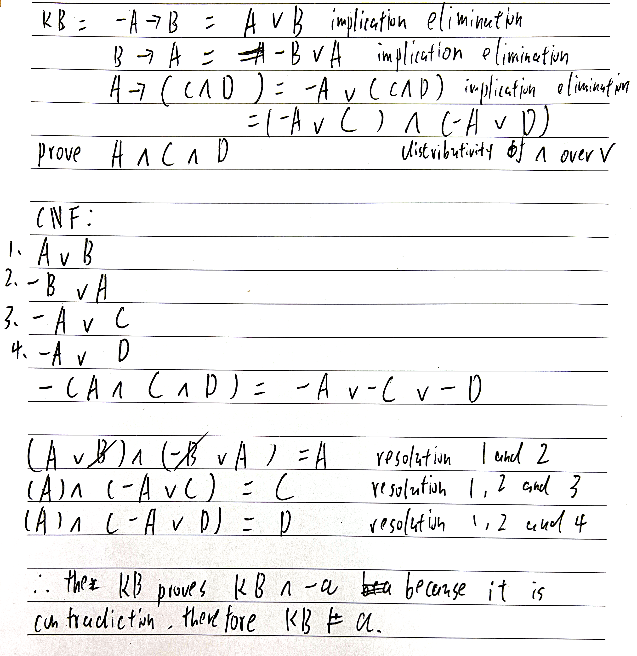 KB = -A → B = A ∨ B implication elimination
B → A = -B ∨ A implication elimination
A → (C ∧ D) = -A ∨ (C ∧ D) implication elimination
= (-A ∨ C) ∧ (-A ∨ D)
prove A ∧ C ∧ D distributivity of ∧ over ∨
CNF:
1. A ∨ B
2. -B ∨ A
3. -A ∨ C
4. -A ∨ D
-(A ∧ C ∧ D) = -A ∨ -C ∨ -D
(A ∨ B) ∧ (-B ∨ A) = A resolution 1 and 2
(A) ∧ (-A ∨ C) = C resolution 1, 2 and 3
(A) ∧ (-A ∨ D) = D resolution 1, 2 and 4
∴ the KB proves KB ∧ -a because it is
contradiction, therefore KB ⊨ a.